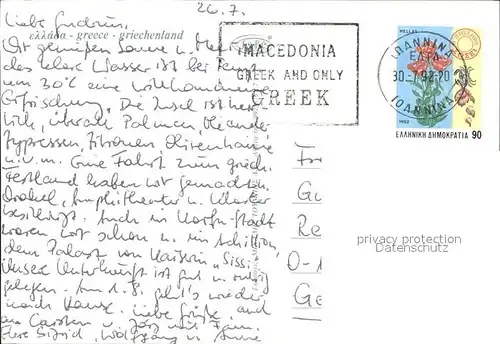 26.7.
Liebe Gudrun,
ελλάδα - greece - griechenland
Wir genießen Sonne u. Meer,
das klare Wasser ist bei
um 30°C eine willkommene
Erfrischung. Die Insel ist herr-
lich, überall Palmen, Oleander
Zypressen, Zitronen Olivenhaine
u.v.m. Eine Fahrt zum griech.
Festland haben wir gemacht
Orakel, Amphitheater u. Kloster
besichtigt. Auch in Korfu-Stadt
waren wir schon u. im Achillion,
dem Palast von Kaiserin "Sissi"
Unsere Unterkunft ist gut u. ruhig
gelegen. Am 1.8. geht's wieder
nach Hause. Liebe Grüße, auch
an Carsten u. Jörg mit Fam.
Eure Sigrid, Wolfgang u. Anne
MACEDONIA
GREEK AND ONLY
GREEK
ΙΩΑΝΝΙΝΑ
30 -7 92-20
ΙΩΑΝΝΙΝΑ
HELLAS
ΕΛΛΗΝΙΚΗ ΔΗΜΟΚΡΑΤΙΑ 90
1992
Fr
Gu
Re
D-1
Ge
privacy protection
Datenschutz